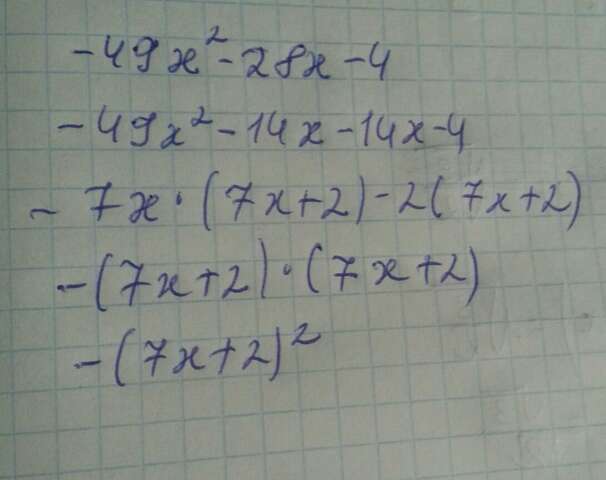 -49x²-28x-4
-49x²-14x-14x-4
-7x·(7x+2)-2(7x+2)
-(7x+2)·(7x+2)
-(7x+2)²